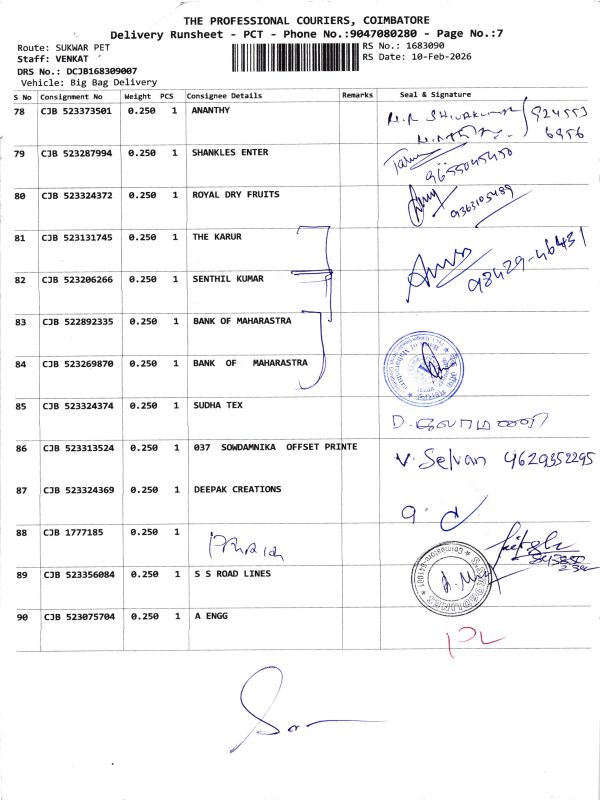 THE PROFESSIONAL COURIERS, COIMBATORE
Delivery Runsheet - PCT - Phone No.:9047080280 - Page No.:7
Route: SUKWAR PET
RS No.: 1683090
Staff: VENKAT
RS Date: 10-Feb-2026
DRS No.: DCJB168309007
Vehicle: Big Bag Delivery
S No Consignment No Weight PCS Consignee Details Remarks Seal & Signature
78 CJB 523373501 0.250 1 ANANTHY
924553
6956
79 CJB 523287994 0.250 1 SHANKLES ENTER
9655045450
80 CJB 523324372 0.250 1 ROYAL DRY FRUITS 9363105489
81 CJB 523131745 0.250 1 THE KARUR
98429-46431
82 CJB 523206266 0.250 1 SENTHIL KUMAR
83 CJB 522892335 0.250 1 BANK OF MAHARASTRA
84 CJB 523269870 0.250 1 BANK OF MAHARASTRA
85 CJB 523324374 0.250 1 SUDHA TEX
86 CJB 523313524 0.250 1 037 SOWDAMNIKA OFFSET PRINTE V. Selvan 4629352295
87 CJB 523324369 0.250 1 DEEPAK CREATIONS
88 CJB 1777185 0.250 1
89 CJB 523356084 0.250 1 S S ROAD LINES
90 CJB 523075704 0.250 1 A ENGG